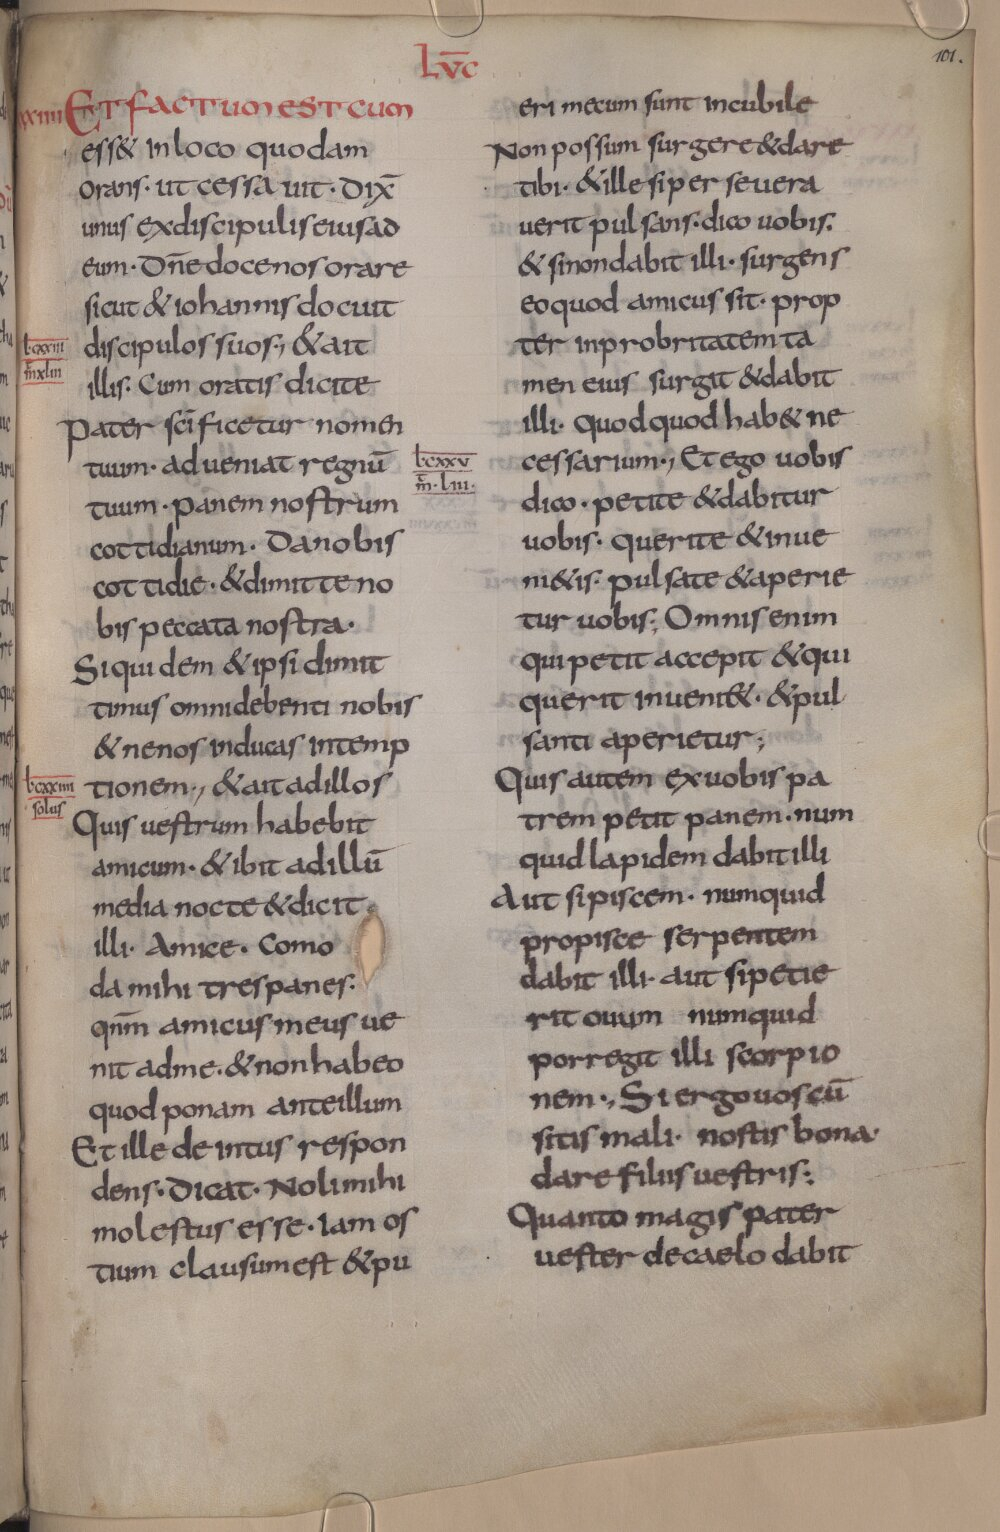 LVC̄
101.
xxiiii ET FACTUM EST CUM
ess& in loco quodam
orans· ut cessauit· Dix̄
unus ex discipulis eius ad
eum· Dn̄e doce nos orare
sicut & iohannis docuit
lxxiii
m̄ xliii
discipulos suos·, & ait
illis· Cum oratis dicite
Pater sc̄ificetur nomen
tuum· adueniat regnū
tuum· panem nostrum
cottidianum· Da nobis
cottidie· & dimitte no
bis peccata nostra·
Si quidem & ipsi dimit
timus omni debenti nobis
& ne nos inducas in temp
lxxiiii
solus
tionem·, & ait ad illos
Quis uestrum habebit
amicum· & ibit ad illū
media nocte & dicit
illi· Amice· Como
da mihi tres panes:
qnm̄ amicus meus ue
nit ad me· & non habeo
quod ponam ante illum
Et ille de intus respon
dens· Dicat· Noli mihi
molestus esse· Iam os
tium clausum est & pu
eri mecum sunt in cubile
Non possum surgere & dare
tibi· & ille si perseuera
uerit pulsans· dico uobis:
& si non dabit illi· surgens
eo quod amicus sit· prop
ter inprobritatem ta
men eius surgit & dabit
illi· Quodquod hab& ne
lcxxv
m̄· liii·
cessarium·, Et ego uobis
dico· petite & dabitur
uobis· querite & inue
ni&is· pulsate & aperie
tur uobis; Omnis enim
qui petit accepit & qui
querit inueni&· & pul
santi aperietur;
Quis autem ex uobis pa
trem petit panem· num
quid lapidem dabit illi
Aut si piscem· numquid
pro pisce serpentem
dabit illi· aut si petie
rit ouum numquid
porregit illi scorpio
nem·, Si ergo uos cū
sitis mali· nostis bona·
dare filiis uestris:·
Quanto magis pater
uester de caelo dabit